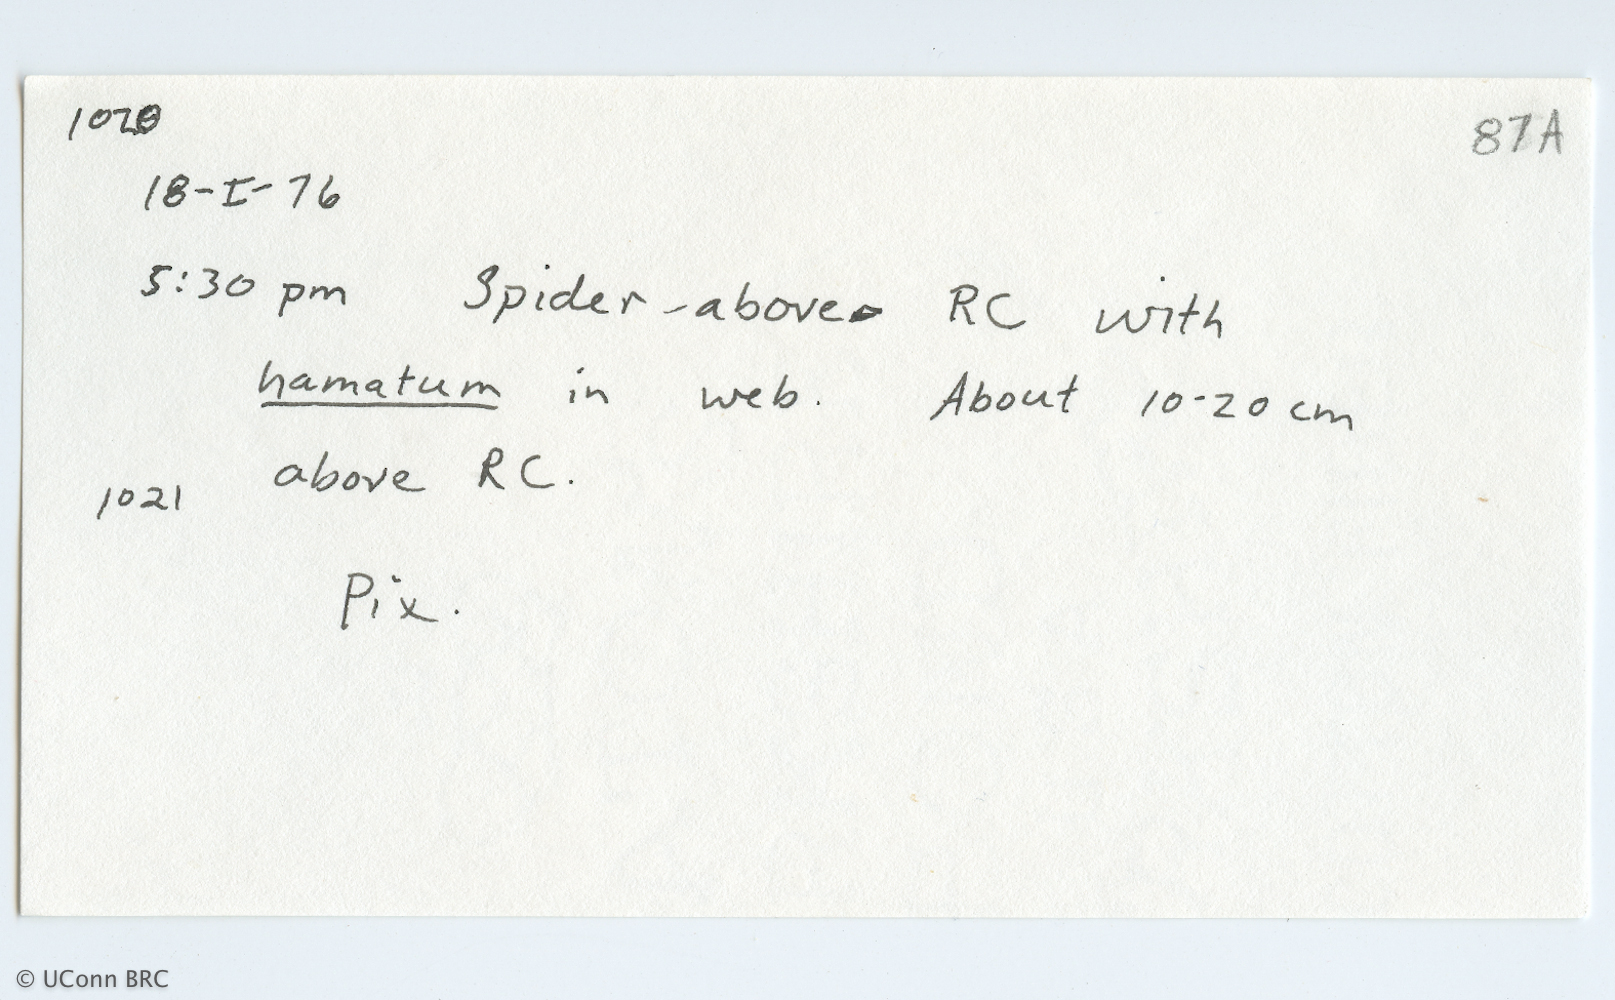 1020
87A
18-I-76
5:30 pm Spider - above RC with
hamatum in web. About 10-20 cm
above RC.
1021
Pix.
© UConn BRC